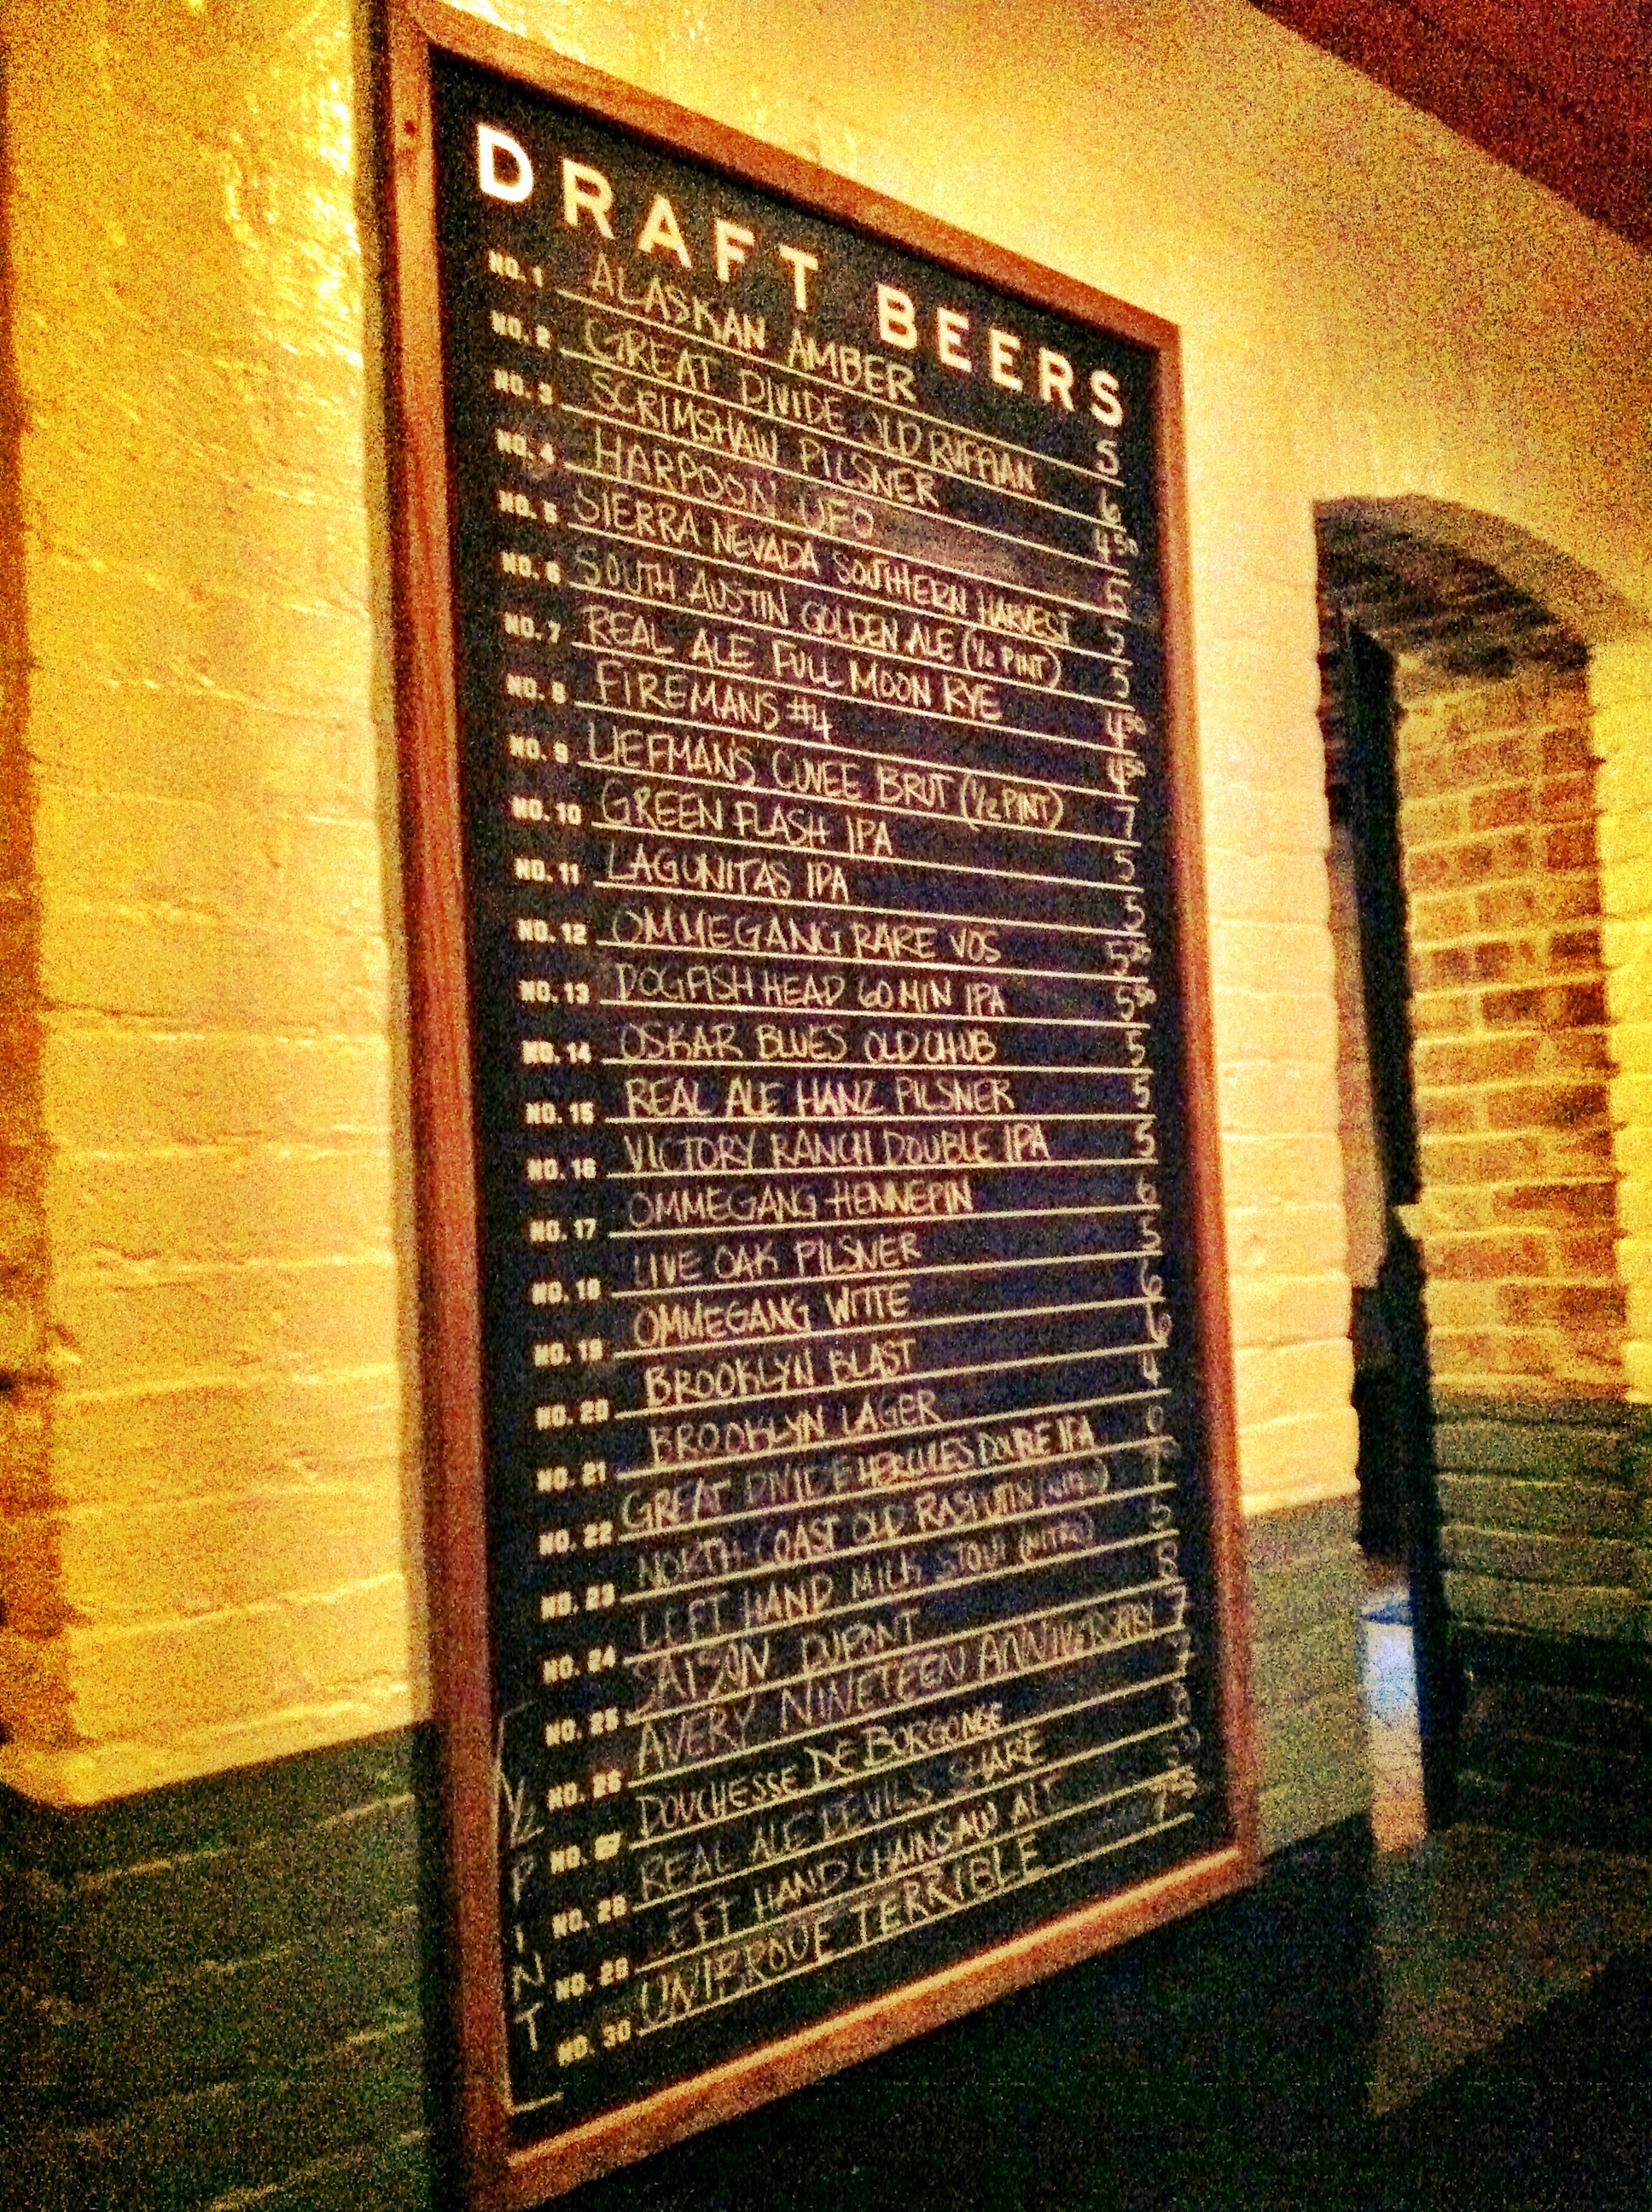 DRAFT BEERS
NO. 1 ALASKAN AMBER 5
NO. 2 GREAT DIVIDE OLD RUFFIAN 6
NO. 3 SCRIMSHAW PILSNER
NO. 4 HARPOON UFO 5
NO. 5 SIERRA NEVADA SOUTHERN HARVEST 5
NO. 6 SOUTH AUSTIN GOLDEN ALE (1/2 PINT) 5
NO. 7 REAL ALE FULL MOON RYE
NO. 8 FIREMANS #4
NO. 9 LIEFMANS CUVEE BRUT (1/2 PINT) 7
NO. 10 GREEN FLASH IPA 5
NO. 11 LAGUNITAS IPA 5
NO. 12 OMMEGANG RARE VOS
NO. 13 DOGFISH HEAD 60 MIN IPA
NO. 14 OSKAR BLUES OLD CHUB 5
NO. 15 REAL ALE HANZ PILSNER 5
NO. 16 VICTORY RANCH DOUBLE IPA 5
NO. 17 OMMEGANG HENNEPIN 6
NO. 18 LIVE OAK PILSNER 5
NO. 19 OMMEGANG WITTE 6
NO. 20 BROOKLYN BLAST 6
NO. 21 BROOKLYN LAGER 4
NO. 22 GREAT DIVIDE HERCULES DOUBLE IPA
NO. 23 NORTH COAST OLD RASPUTIN (NITRO)
NO. 24 LEFT HAND MILK STOUT (NITRO) 5
NO. 25 SAISON DUPONT
NO. 26 AVERY NINETEEN ANNIVERSARY
NO. 27 DOUCHESSE DE BORGONGE
NO. 28 REAL ALE DEVILS SHARE
NO. 29 LEFT HAND CHAINSAW ALT
NO. 30 UNIBROUE TERRIBLE
1/2 PINT